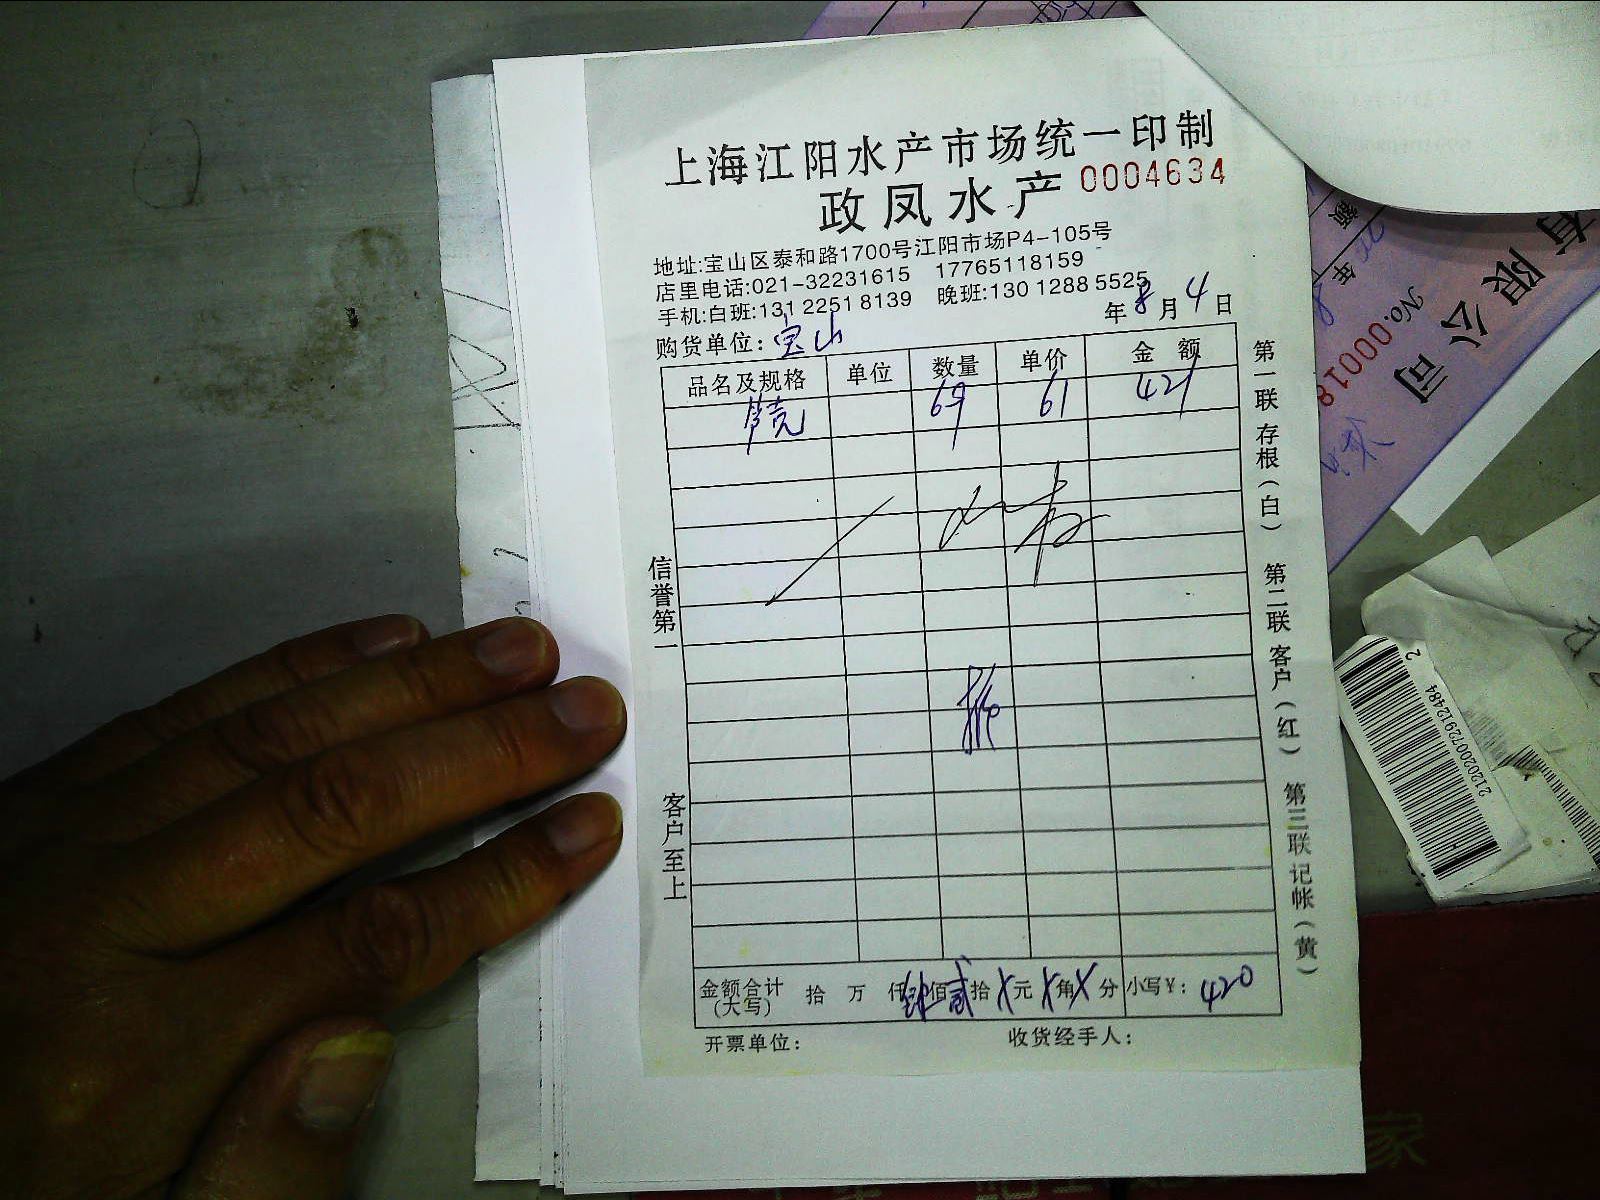 上海江阳水产市场统一印制
政凤水产 0004634
地址:宝山区泰和路1700号江阳市场P4-105号
店里电话:021-32231615 17765118159
手机:白班:131 2251 8139 晚班:130 1288 5525
年8月4日
购货单位:宝山
品名及规格 单位 数量 单价 金额
69 61 421
信誉第一
客户至上
第一联存根(白) 第二联客户(红) 第三联记帐(黄)
金额合计(大写) 拾 万 仟 佰贰拾X元X角X分 小写¥: 420
开票单位: 收货经手人:
有限公司
No.00018
年
额
212020072912484
2
家